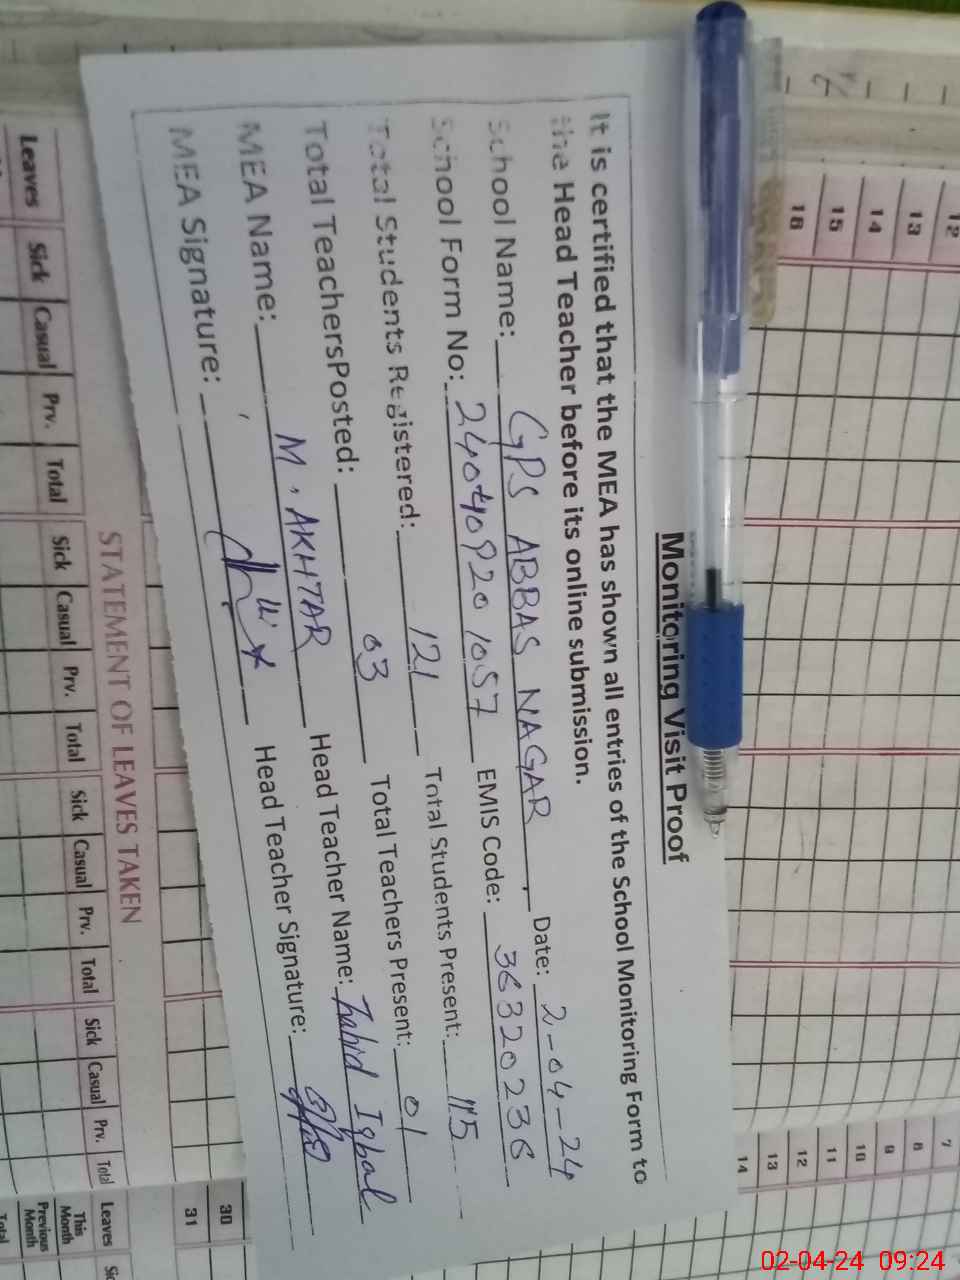 Monitoring Visit Proof
It is certified that the MEA has shown all entries of the School Monitoring Form to
the Head Teacher before its online submission.
School Name: GPS ABBAS NAGAR, Date: 2-04-24
School Form No: 240409201057 EMIS Code: 36320236
Total Students Registered: 121 Total Students Present: 115
Total TeachersPosted: 03 Total Teachers Present: 01
MEA Name: M. AKHTAR Head Teacher Name: Zahid Iqbal
MEA Signature: Head Teacher Signature:
STATEMENT OF LEAVES TAKEN
Leaves Sick Casual Prv. Total Sick Casual Prv. Total Sick Casual Prv. Total Sick Casual Prv. Total
Leaves
This Month
Previous Month
Total
30
31
12
13
14
15
16
7
8
9
10
11
12
13
14
02-04-24 09:24